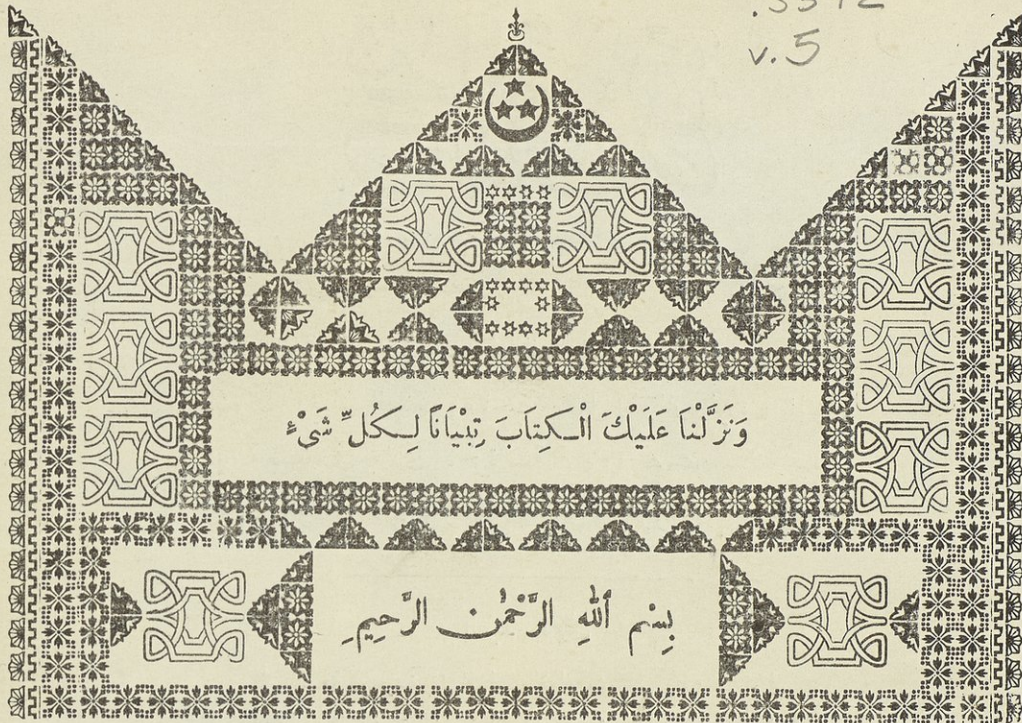 v.5
وَنَزَّلْنَا عَلَيْكَ الْكِتَابَ تِبْيَانًا لِكُلِّ شَىْءٍ
بِسْمِ ٱللهِ الرَّحْمٰنِ الرَّحِيمِ